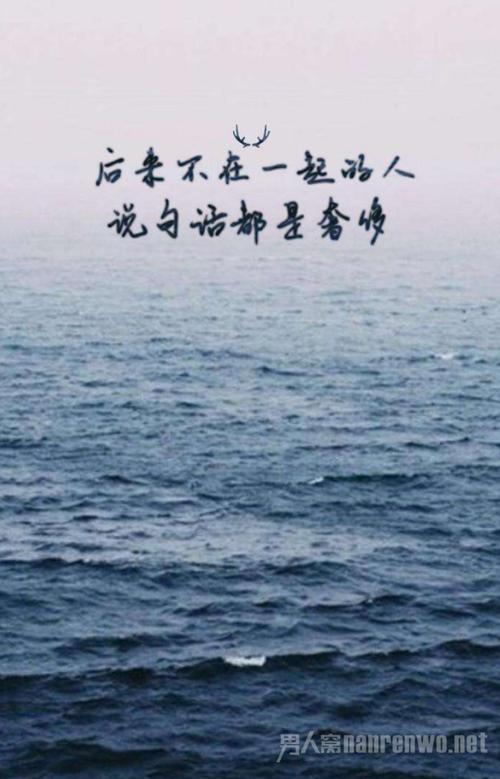 后来不在一起的人
说句话都是奢侈
男人窝nanrenwo.net